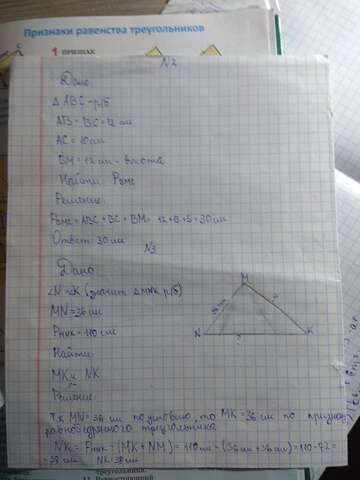 Признаки равенства треугольников
1 ПРИЗНАК
N2
Дано
Δ ABC - р/б
AB = BC = 12 см
AC = 10 см
BM = 12 см - высота
Найти: Pвмс
Решение
Pвмс = + BC + BM = 12 + 8 + 5 = 30 см
Ответ: 30 см
N3
Дано
∠N = ∠K (значит ΔMNK р/б)
MN = 36 см
PMNK = 110 см
Найти
MK и NK
Решение
Т.к MN = 36 см по условию, то MK = 36 см по признаку
равнобедренного треугольника
NK = PMNK - (MK + NM) = 110 см - (36 см + 36 см) = 110 - 72 =
= 38 см NK = 38 см
M
36 см
?
N
?
K
треугольника.